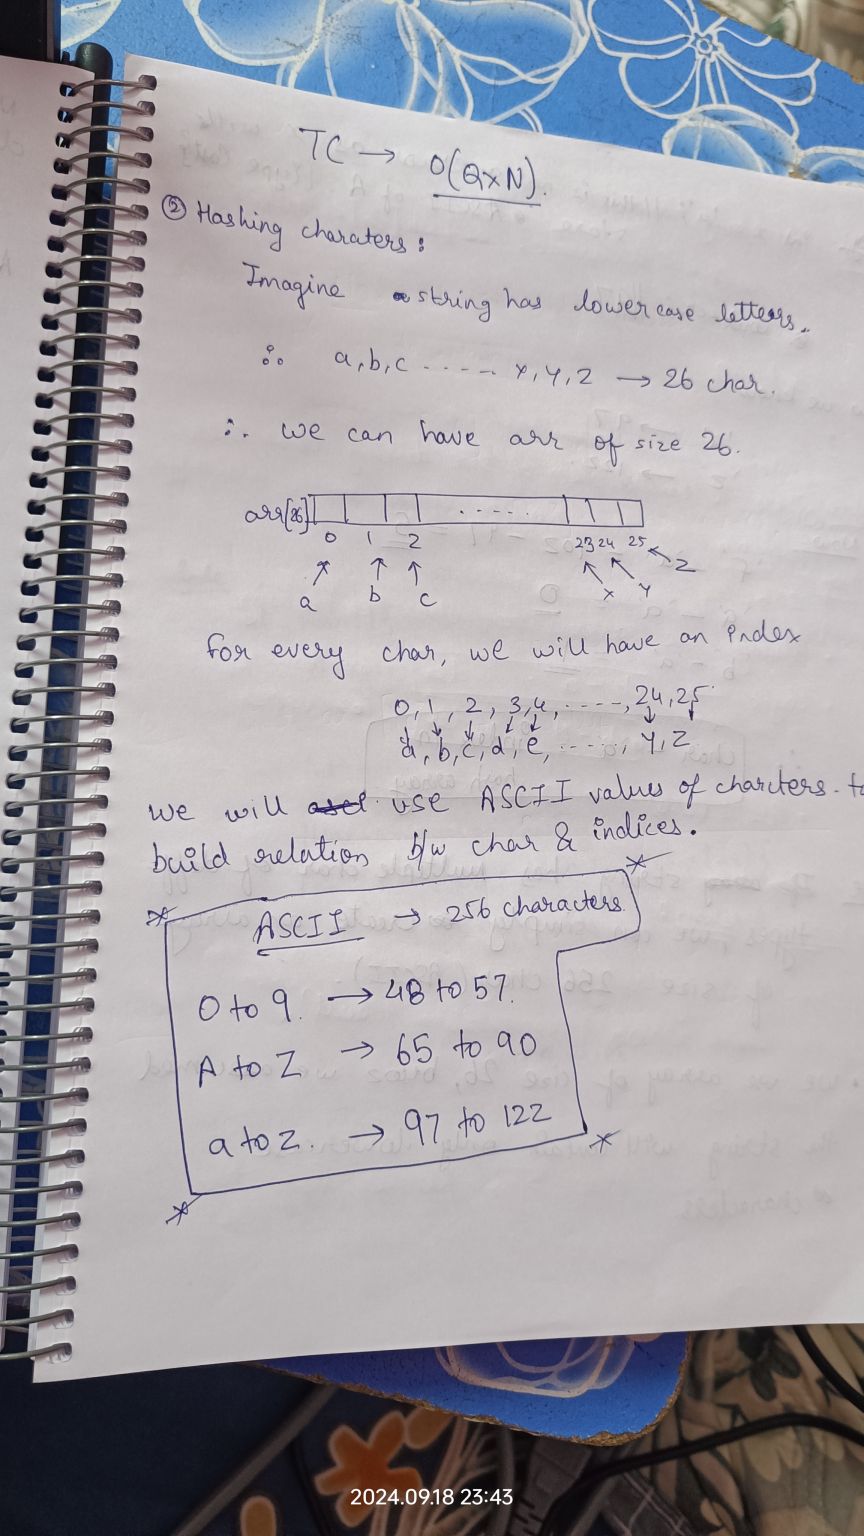 TC → O(Q×N).
② Hashing charaters:
Imagine a string has lowercase letters.
∴ a, b, c ----- x, y, z → 26 char.
∴ we can have arr of size 26.
arr[26] - - - - -
0 1 2 23 24 25
a b c x y z
for every char, we will have an index
0, 1, 2, 3, 4, ----, 24, 25
a, b, c, d, e, ----, y, z
we will use ASCII values of charcters. to
build relation b/w char & indices.
ASCII → 256 characters.
0 to 9. → 48 to 57.
A to Z → 65 to 90
a to z. → 97 to 122
2024.09.18 23:43